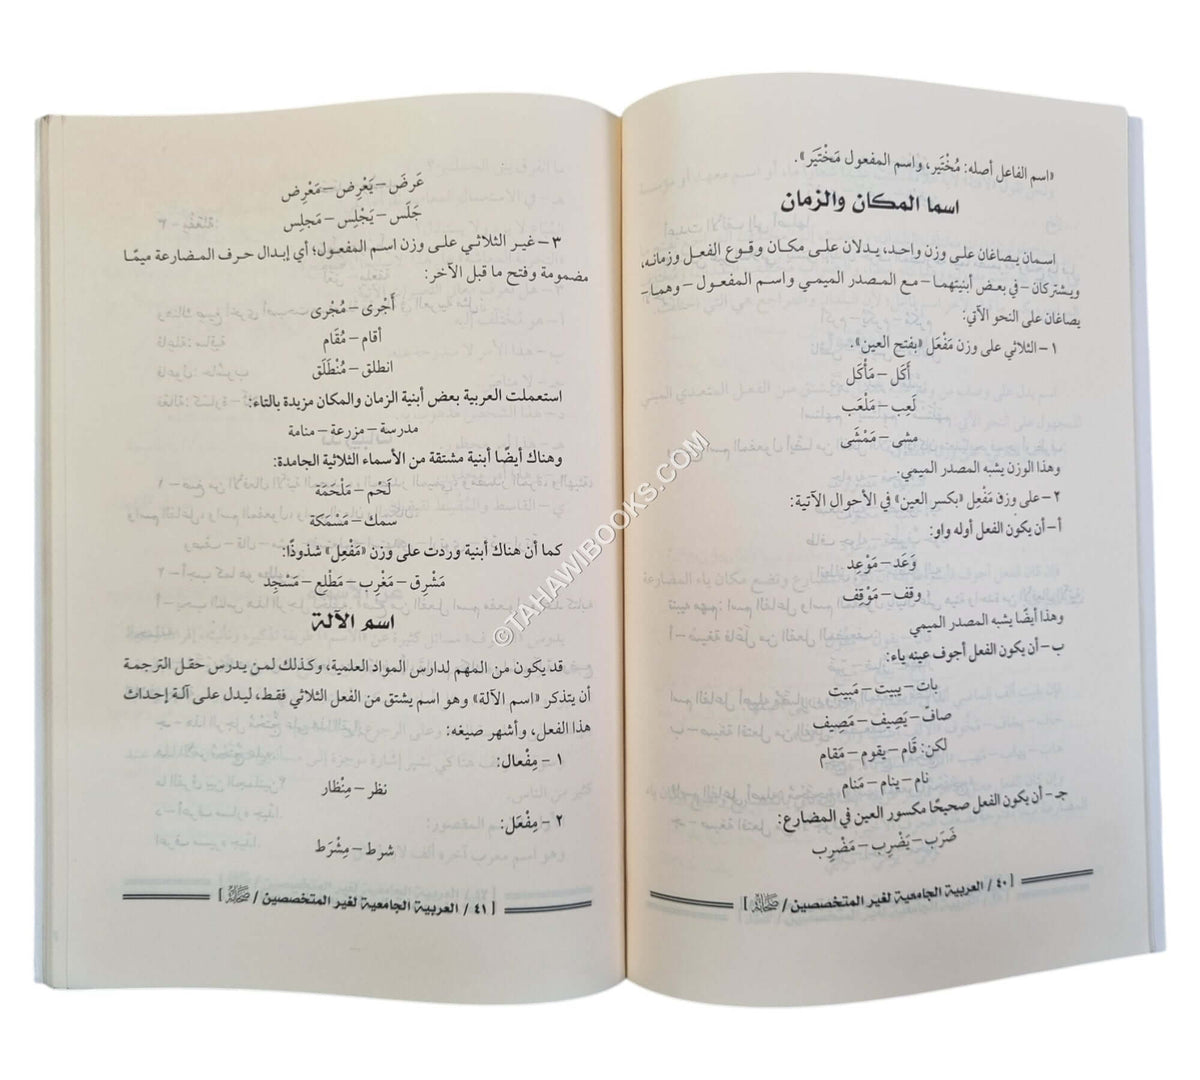 «اسم الفاعل أصله: مُخْتَيِر، واسم المفعول مَخْتَيَر».
اسما المكان والزمان
اسمان يصاغان على وزن واحد، يدلان على مكان وقوع الفعل وزمانه،
ويشتركان – في بعض أبنيتهما – مع المصدر الميمي واسم المفعول – وهما –
يصاغان على النحو الآتي:
١ – الثلاثي على وزن مَفْعَل «بفتح العين».
أَكَل – مَأْكَل
لَعِب – مَلْعَب
مشى – مَمْشَى
وهذا الوزن يشبه المصدر الميمي.
٢ – على وزن مَفْعِل «بكسر العين» في الأحوال الآتية:
أ – أن يكون الفعل أوله واو:
وَعَد – مَوْعِد
وقف – مَوْقِف
وهذا أيضًا يشبه المصدر الميمي
ب – أن يكون الفعل أجوف عينه ياء:
بات – يبيت – مَبيت
صافّ – يَصِيف – مَصِيف
لكن: قَام – يقوم – مَقام
نام – ينام – مَنام
جـ – أن يكون الفعل صحيحًا مكسور العين في المضارع:
ضَرَب – يَضْرِب – مَضْرِب
[ ٤٠ / العربية الجامعية لغير المتخصصين / صحابة ]
عَرضَ – يَعْرِض – مَعْرِض
جَلَس – يَجْلِس – مَجلِس
٣ – غير الثلاثي على وزن اسم المفعول؛ أي إبدال حرف المضارعة ميمًا
مضمومة وفتح ما قبل الآخر:
أَجْرى – مُجْرى
أقام – مُقَام
انطلق – مُنْطَلَق
استعملت العربية بعض أبنية الزمان والمكان مزيدة بالتاء:
مدرسة – مزرعة – منامة
وهناك أيضًا أبنية مشتقة من الأسماء الثلاثية الجامدة:
لَحْم – مَلْحَمَة
سمك – مَسْمَكة
كما أن هناك أبنية وردت على وزن «مَفْعِل» شذوذًا:
مَشْرِق – مَغْرِب – مَطْلِع – مَسْجِد
اسم الآلة
قد يكون من المهم لدارس المواد العلمية، وكذلك لمن يدرس حقل الترجمة
أن يتذكر «اسم الآلة» وهو اسم يشتق من الفعل الثلاثي فقط، ليدل على آلة إحداث
هذا الفعل، وأشهر صيغه:
١ – مِفْعال:
نظر – مِنْظار
٢ – مِفْعَل:
شرط – مِشْرَط
[ ٤١ / العربية الجامعية لغير المتخصصين / صحابة ]
©TAHAWIBOOKS.COM